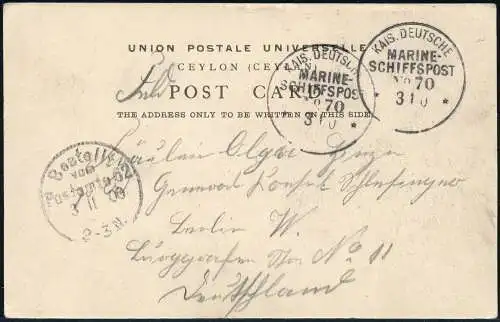 UNION POSTALE UNIVERSELLE
CEYLON (CEYLAN)
POST CARD
THE ADDRESS ONLY TO BE WRITTEN ON THIS SIDE
KAIS. DEUTSCHE
MARINE-
SCHIFFSPOST
No 70
* 3 10 *
KAIS. DEUTSCHE
MARINE-
SCHIFFSPOST
No 70
* 3 10 *
Bestellt
vom
Postamte
3 11 00
2-3N.
Fräulein Olga
General Konsul Schlesinger
Berlin W.
No 11
Deutschland